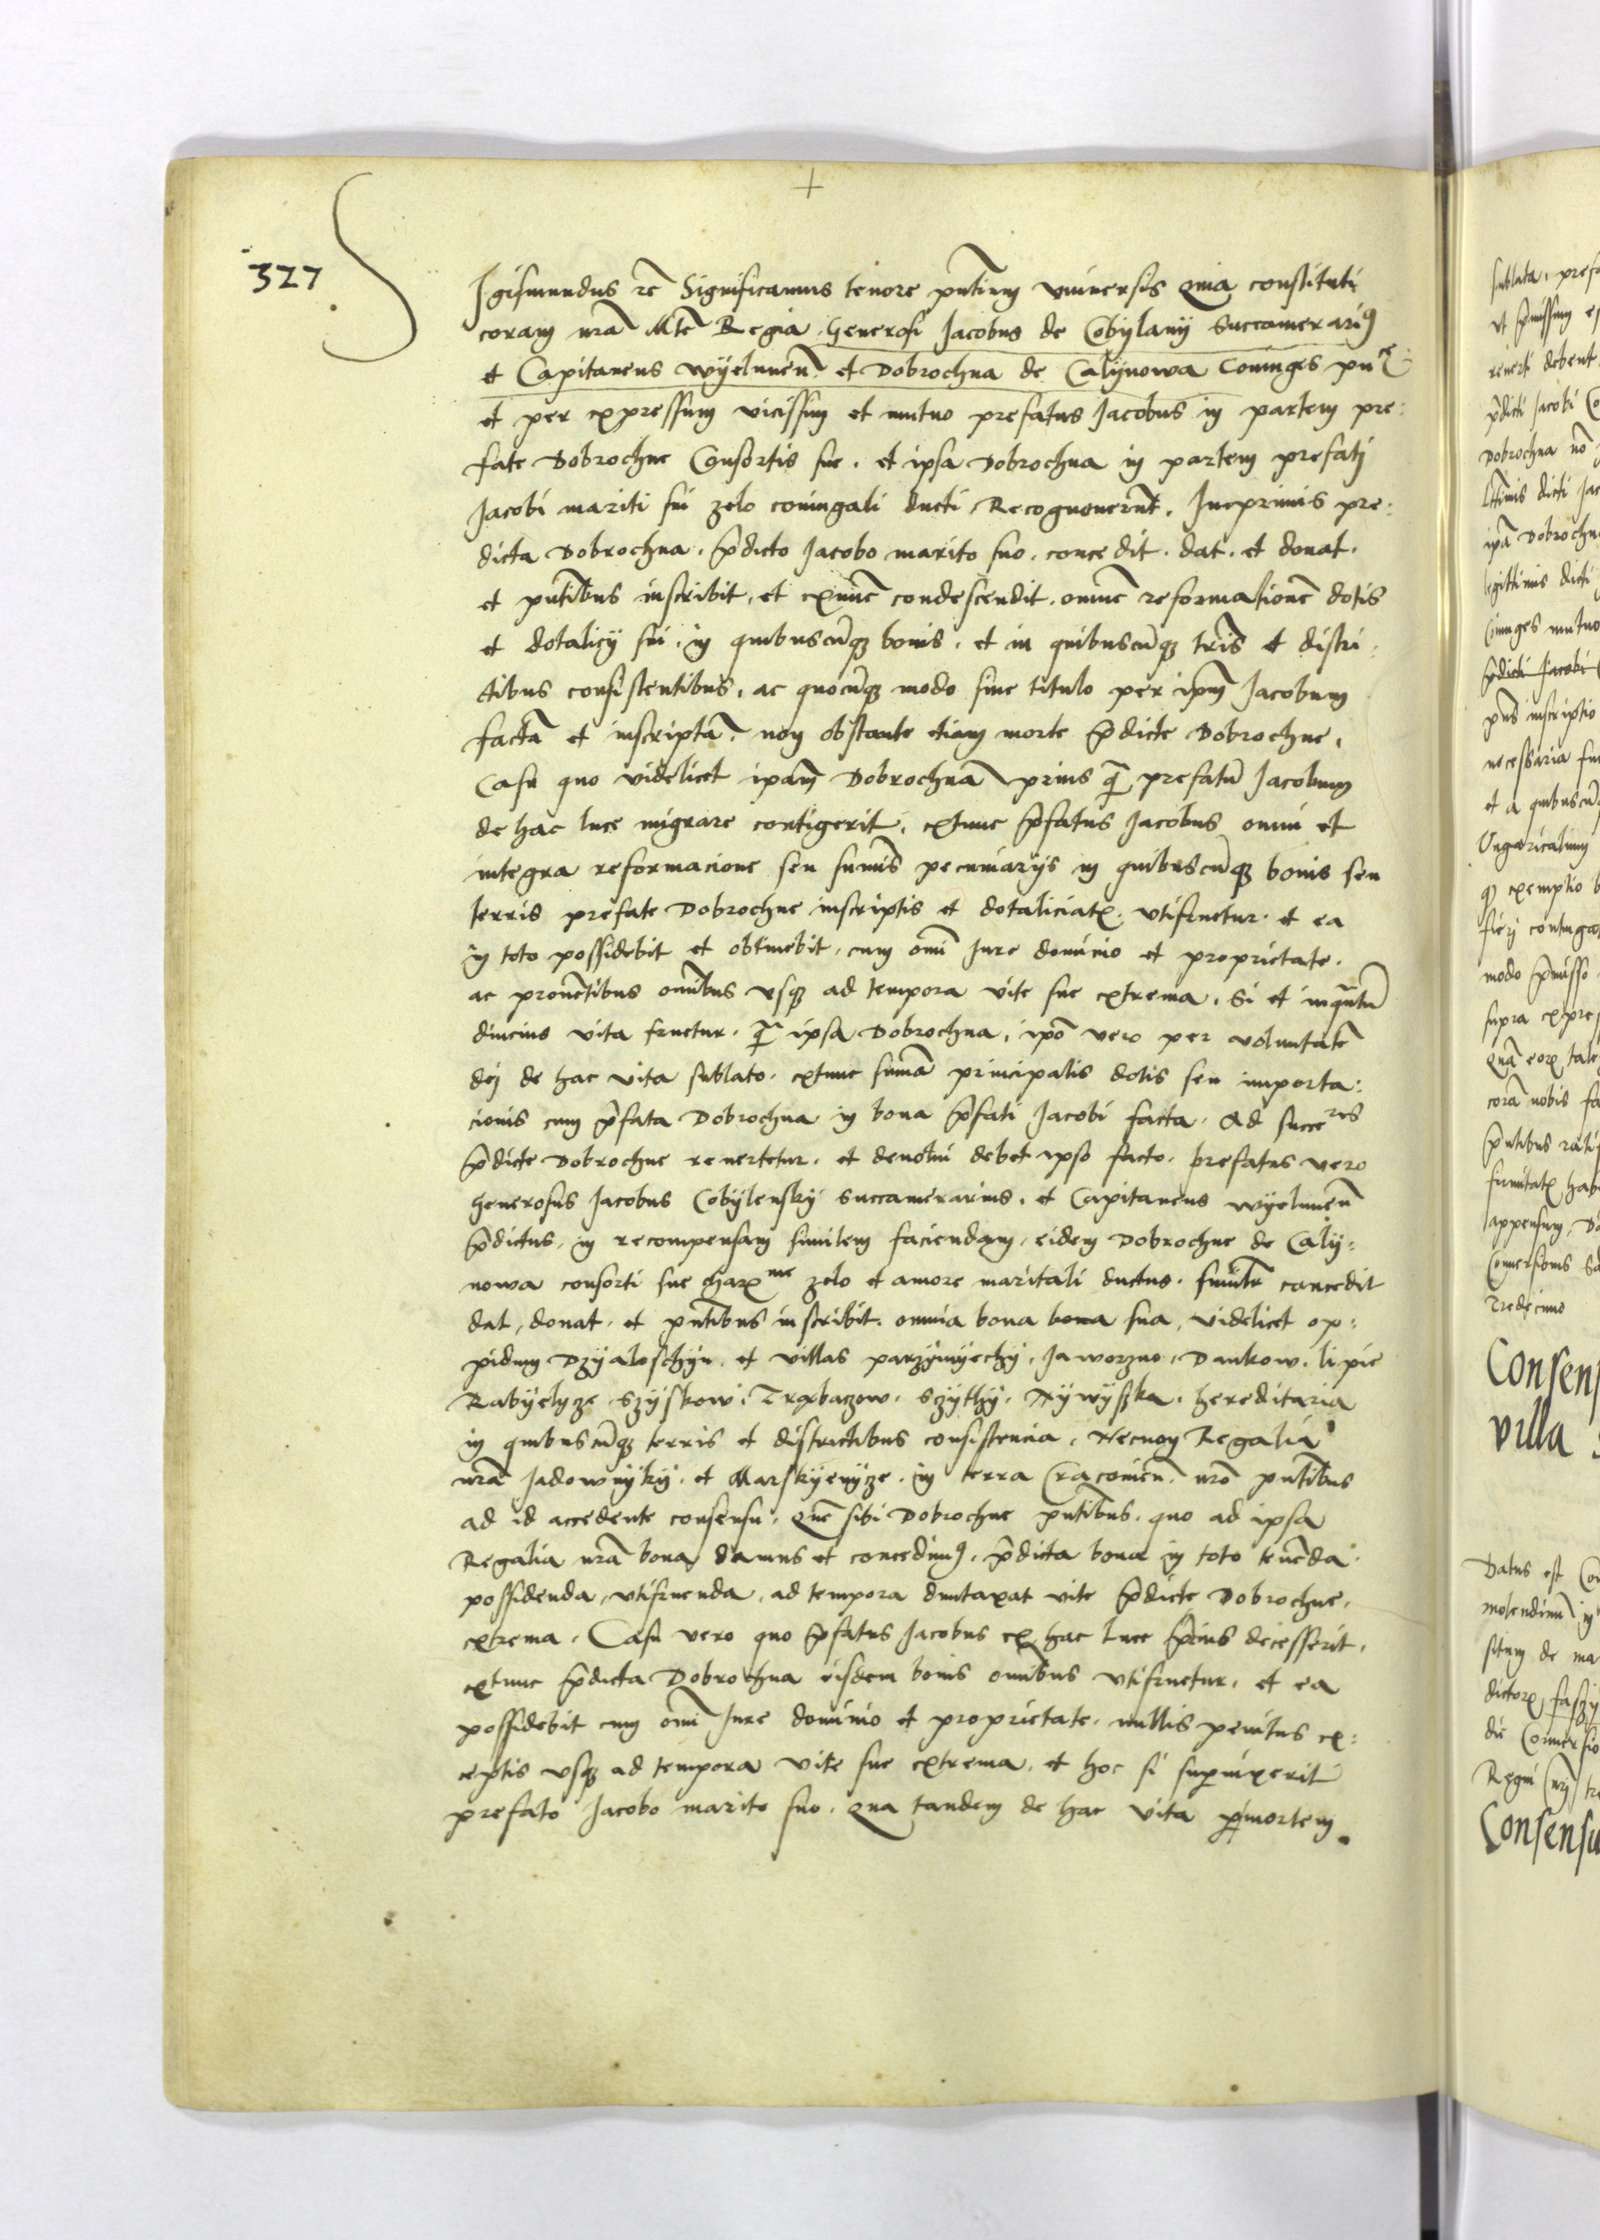 327
Sigismundus rc̄ Significamus tenore pn̄tium vniuersis Quia constituti
coram nrā Mtē Regia Generosi Jacobus de Cobylany Succamerariꝰ
et Capitaneus wyelunen̄ et Dobrochna de Calynowa Coniuges pn̄te
et per expressum vicissim et mutuo prefatus Jacobus in partem pre:
fate Dobrochne Consortis sue. et ipsa Dobrochna in partem prefatj
Jacobi mariti sui zelo coniugali ducti Recognouerūt. Inprimis pre:
dicta Dobrochna. p̄dicto Jacobo marito suo. concedit. dat. et donat.
et pn̄tibus inscribit. et extunc condescendit. omnē reformationē dotis
et dotalicij sui. in quibuscūqꝫ bonis. et in quibuscūqꝫ tr̄is et distri:
ctibus consistentibus. ac quocūqꝫ modo siue titulo per ipm̄ Jacobum
factā et inscriptā. non obstante etiam morte p̄dicte Dobrochne.
Casu quo videlicet ipam̄ Dobrochnā prius q̄ prefatū Jacobum
de hac luce migrare contigerit. extunc p̄fatus Jacobus omni et
integra reformacione seu sumīs pecuniarijs in quibuscūqꝫ bonis seu
terris prefate Dobrochne inscriptis et dotaliciatꝭ. vtifruetur. et ea
in toto possidebit et obtinebit. cum omī Jure dominio et proprietate.
ac prouētibus omībus vsqꝫ ad tempora vite sue extrema. Si et inqͣntū
diucius vita fruetur. q̄ ipsa Dobrochna. ipō vero per voluntatē
dei de hac vita sublato. extunc sumā principalis dotis seu importa:
cionis cum p̄fata Dobrochna in bona p̄fati Jacobi facta. Ad succeres
p̄dicte Dobrochne reuertetur. et deuolui debet ipso facto. prefatus vero
Generosus Jacobus Cobylensky Succamerarius. et Capitaneus wyelunen̄
p̄dictus. in recompensam similem faciendam. eidem Dobrochne de Caly:
nowa consorti sue charme zelo et amore maritali ductus. similr̄ concedit
dat, donat. et pn̄tibus inscribit. omnia bona bona sua, videlicet op:
pidum Dzyaloschyn. et villas parzymyechy, Jaworzno, Dankow. lipie
Rabyelyze Szyskow. Trąbaczow. Szythy. Nywyska. hereditaria
in quibuscūqꝫ terris et districtibus consistencia. Necnon Regalia
nrā Jadownyky. et Marskyenyze. in terra Cracouien̄. nrō pn̄tibus
ad id accedente consensu. Quē sibi Dobrochne pn̄tibus. quo ad ipsa
Regalia nrā bona damus et concedimꝰ. p̄dicta bona in toto tenēda
possidenda, vtifruenda, ad tempora duntaxat vite p̄dicte Dobrochne.
extrema. Casu vero quo p̄fatus Jacobus ex hac luce p̄rius decesserit.
extunc p̄dicta Dobrochna eisdem bonis omībus vtifruetur. et ea
possidebit cum omī Jure dominio et proprietate. nullis penitus ex:
ceptis vsqꝫ ad tempora vite sue extrema. et hoc si supuixerit
prefato Jacobo marito suo. Qua tandem de hac vita ꝑ mortem
sublata. prefa
reuerti debent
p̄dicti Jacobi Co
Dobrochna nō
ltīmis dicti Jac
ipā Dobrochn
legittimis dicti
Coniuges mutuo
p̄dicti Jacobi
inscriptio
necessaria fu
et a quibuscūq
exemptio b
modo p̄misso
supra expre
Quā eorꝫ tale
corā nobis fa
p̄ntibus ratif
appensum, Da
Conuersionis Sa
Tredecimo
Consens
villa
Datus est Con
molendinū in
situm de ma
dictorꝫ
die Conuersio
Regni nrī tr
Consensu